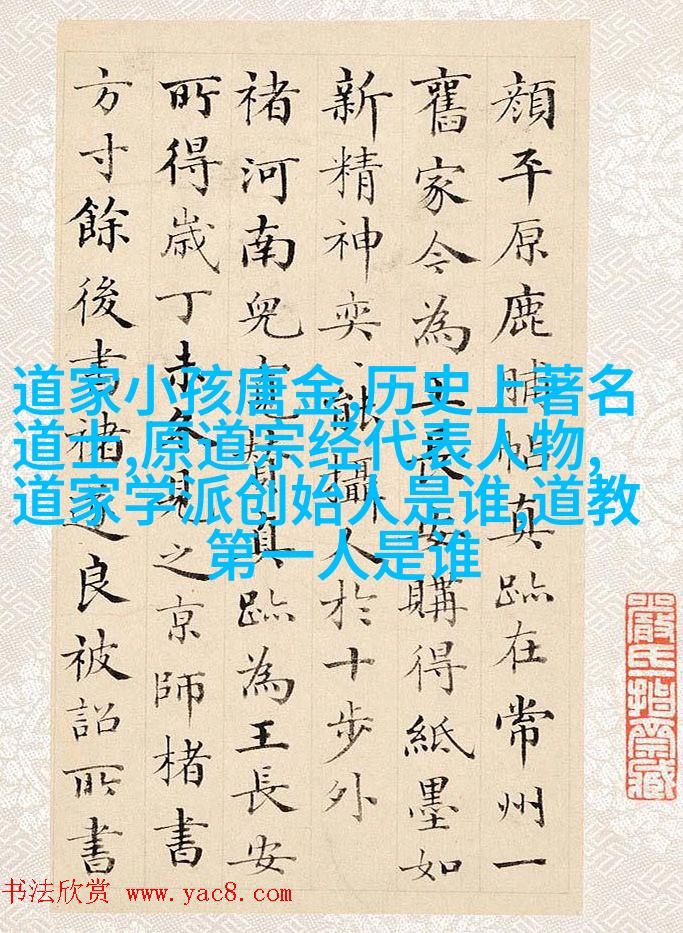 顔平原鹿脯帖真跡在常州一
舊家今為王長安購得紙墨如
新精神奕、能攝人於十步外
褚河南兒寬贊真跡為王長安
所得歲丁未冬見之京師楮書
方寸餘後書褚遂良被詔所書
道家小孩唐金,历史上著名
道士,原道宗经代表人物,
道家学派创始人是谁,道教
第一人是谁
书法欣赏 www.yac8.com